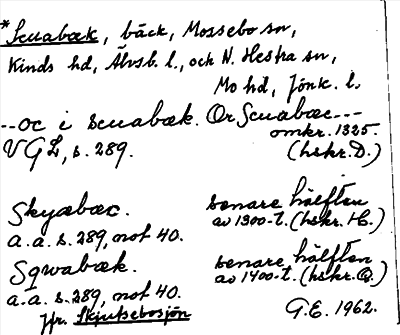 *Scuabæk, bäck, Mossebo sn,
Kinds hd, Älvsb. l., och N. Hestra sn,
Mo hd, Jönk. l.
--oc i scuabæk. Or Scuabæc---
omkr. 1325.
VGL, s. 289. (hskr. D.)
Skyæbæc. senare hälften
av 1300-t. (hskr. H.)
a.a. s. 289, not 40.
Sqwabæk. senare hälften
av 1400-t. (hskr. Q.)
a.a. s. 289, not 40.
Jfr. Skjutsebosjön G.E. 1962.